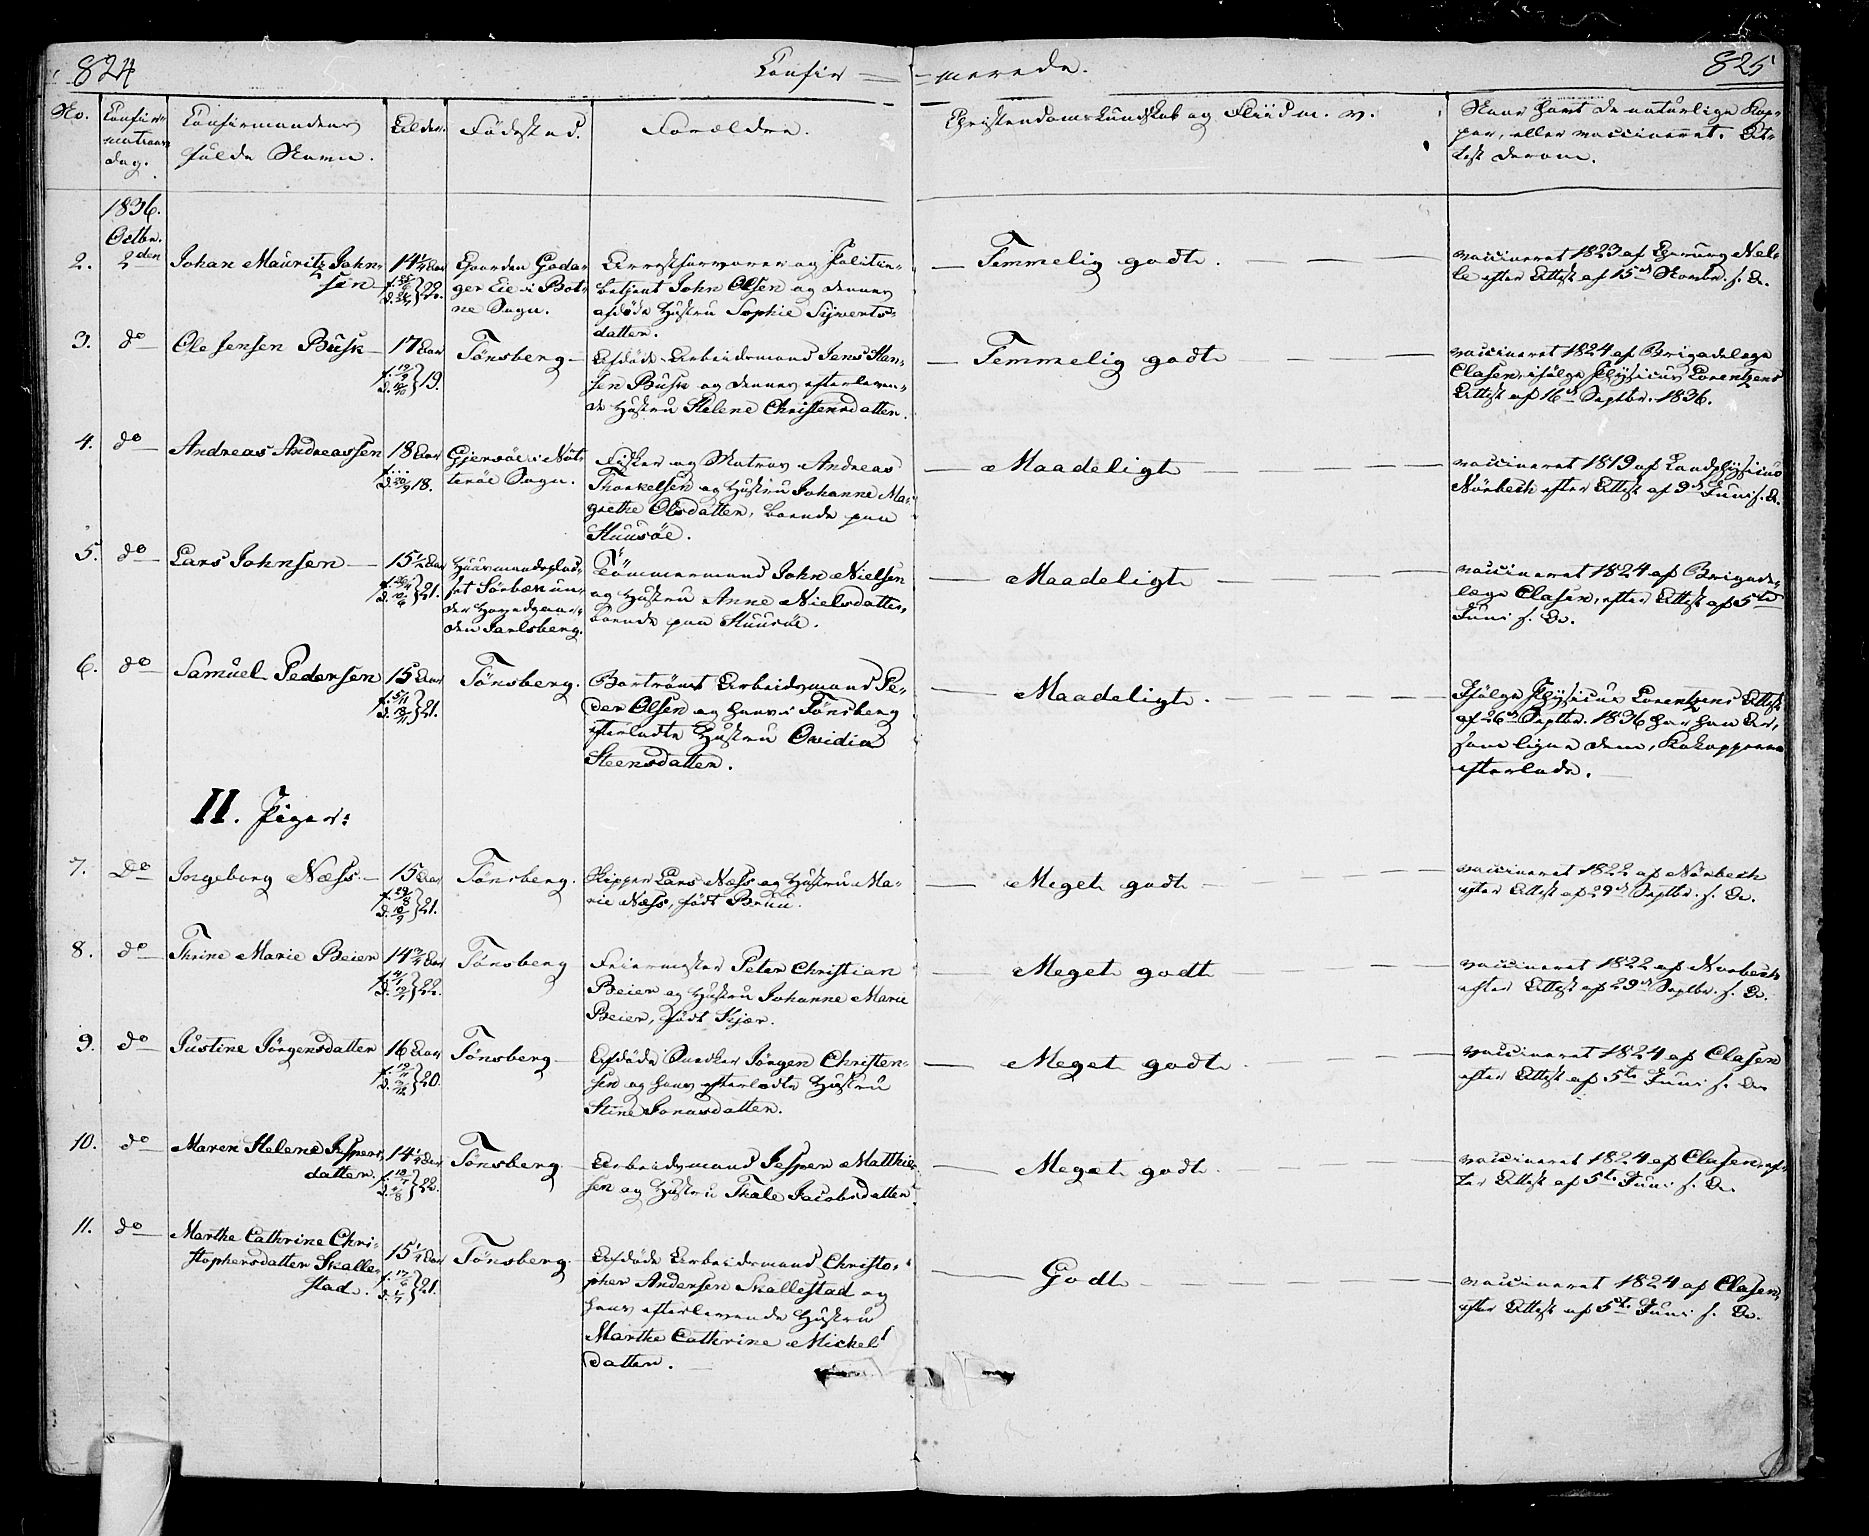 824
Confir-
-merede.
825
No.
Confir-
mations
dag.
Confirmandens
fulde Navn.
Alder.
Födested.
Forældre.
Christendoms Kundskab og Fliid m. v.
Naar havt de naturlige Kop-
per, eller vaccineret. At-
test derom.
1836.
Octbr.
2.
2den
Johan Mauritz John-
sen
14 1/4 Aar
22.
Gaarden
ger Eie i Bot-
ne Sogn.
Arrestforvarer og Politie-
betjent John Olsen og dennes
afdöde Hustru Sophie Sywerts-
datter.
Temmelig godt.
vaccineret 1823 af
efter Attest af 15de Novbr. s. A.
3.
do
Ole Jensen Busk
17 Aar
19.
Tönsberg
Afdöde Arbeidsmand Jens Han-
sen Busk og dennes efterleven-
de Hustru Helene Christensdatter.
Temmelig godt
vaccineret 1824 af Brigadelæge
Clasen, ifölge Physicus Lorentzens
Attest af 16de Septbr. 1836.
4.
do
Andreas Andreassen
18 Aar
18.
Gjersöe i Nöt-
teröe Sogn.
Fisker og Matros Andreas
Thorkelsen og Hustru Johanne Ma-
grethe Olsdatter, boende paa
Huusöe.
Maadeligt
vaccineret 1819 af Landphysicus
Nörbech efter Attest af 9de Juni s. A.
5.
do
Lars Johnsen
15 1/2 Aar
21.
Huusmandsplad-
set Sörbæk un-
der Hovedgaar-
den Jarlsberg.
Tömmermand John Nielsen
og Hustru Anne Nielsdatter,
boende paa Huusöe.
Maadeligt
vaccineret 1824 af Brigade-
læge Clasen, efter Attest af 5te
Juni s. A.
6.
do
Samuel Pedersen
15 Aar
21.
Tönsberg.
Bortrömt Arbeidsmand Pe-
der Olsen og hans i Tönsberg
efterladte Hustru Ovidia
Steensdatter.
Maadeligt.
Ifölge Physicus Lorentzens Attest
af 26de Septbr. 1836 har han Ar,
som ligne dem, Kokopperne
efterlade.
II. Piger:
7.
Do
Ingeborg Næss.
15 Aar
21.
Tönsberg.
Skipper Lars Næss og Hustru Ma-
rie Næss, födt Bruu.
Meget godt
vaccineret 1822 af Nörbech
efter Attest af 29de Septbr. s. A.
8.
do
Thrine Marie Beier
14 3/4 Aar
22.
Tönsberg
Feiermester Peter Christian
Beier og Hustru Johanne Marie
Beier, födt Kjær.
Meget godt
vaccineret 1822 af Norbech
efter Attest af 29de Septbr. s. A.
9.
do
Justine Jörgensdatter
16 Aar
20.
Tönsberg
Afdöde Snedker Jörgen Christen-
sen og hans efterladte Hustru
Stine Jonasdatter.
Meget godt
vaccineret 1824 af Clasen
efter Attest af 5te Juni s. A.
10.
do
Maren Helene Jespers-
datter.
14 1/4 Aar
22.
Tönsberg.
Arbeidsmand Jesper Matthie-
sen og Hustru Thale Jacobsdatter
Meget godt.
vaccineret 1824 af Clasen, ef-
ter Attest af 5te Juni s. A.
11.
do
Marthe Cathrine Chri-
stophersdatter Skalle-
stad.
15 1/4 Aar
21.
Tönsberg.
Afdöde Arbeidsmand Christo-
pher Andersen Skallestad og
hans efterlevende Hustru
Marthe Cathrine Mickels-
datter.
Godt
vaccineret 1824 af Clasen,
efter Attest af 5te Juni s. A.